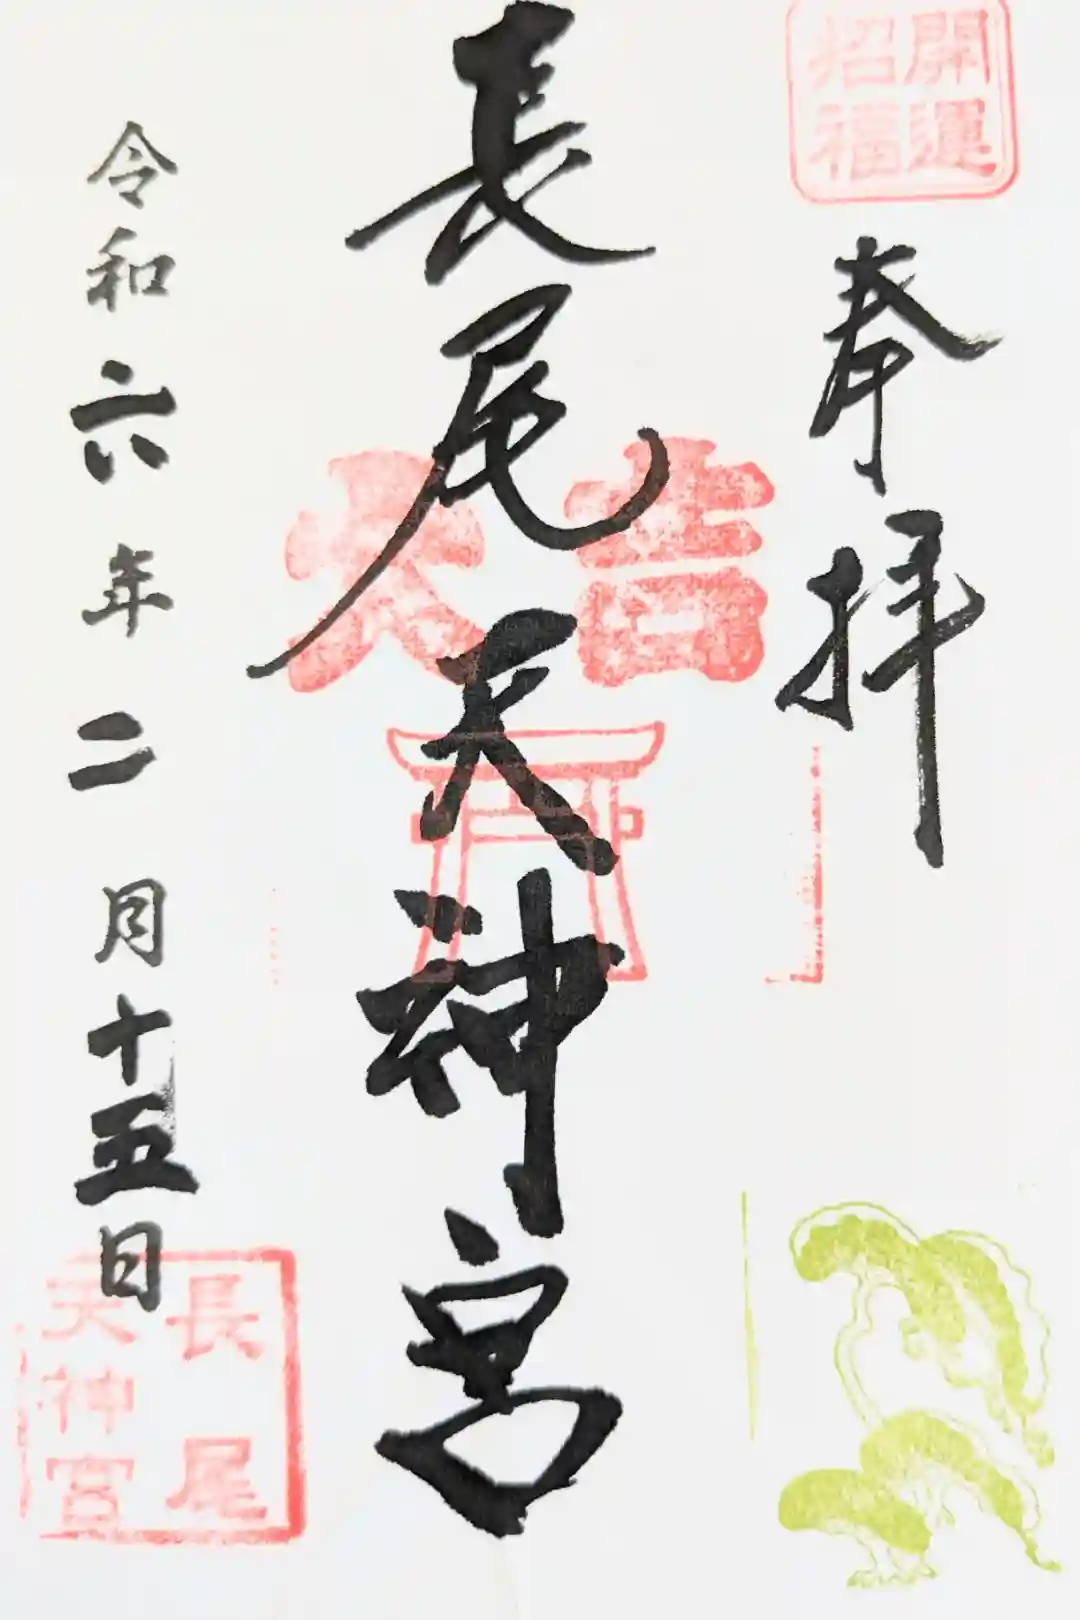 開運
招福
奉拝
吉
大
長尾天神宮
令和六年二月十五日
長尾
天神宮